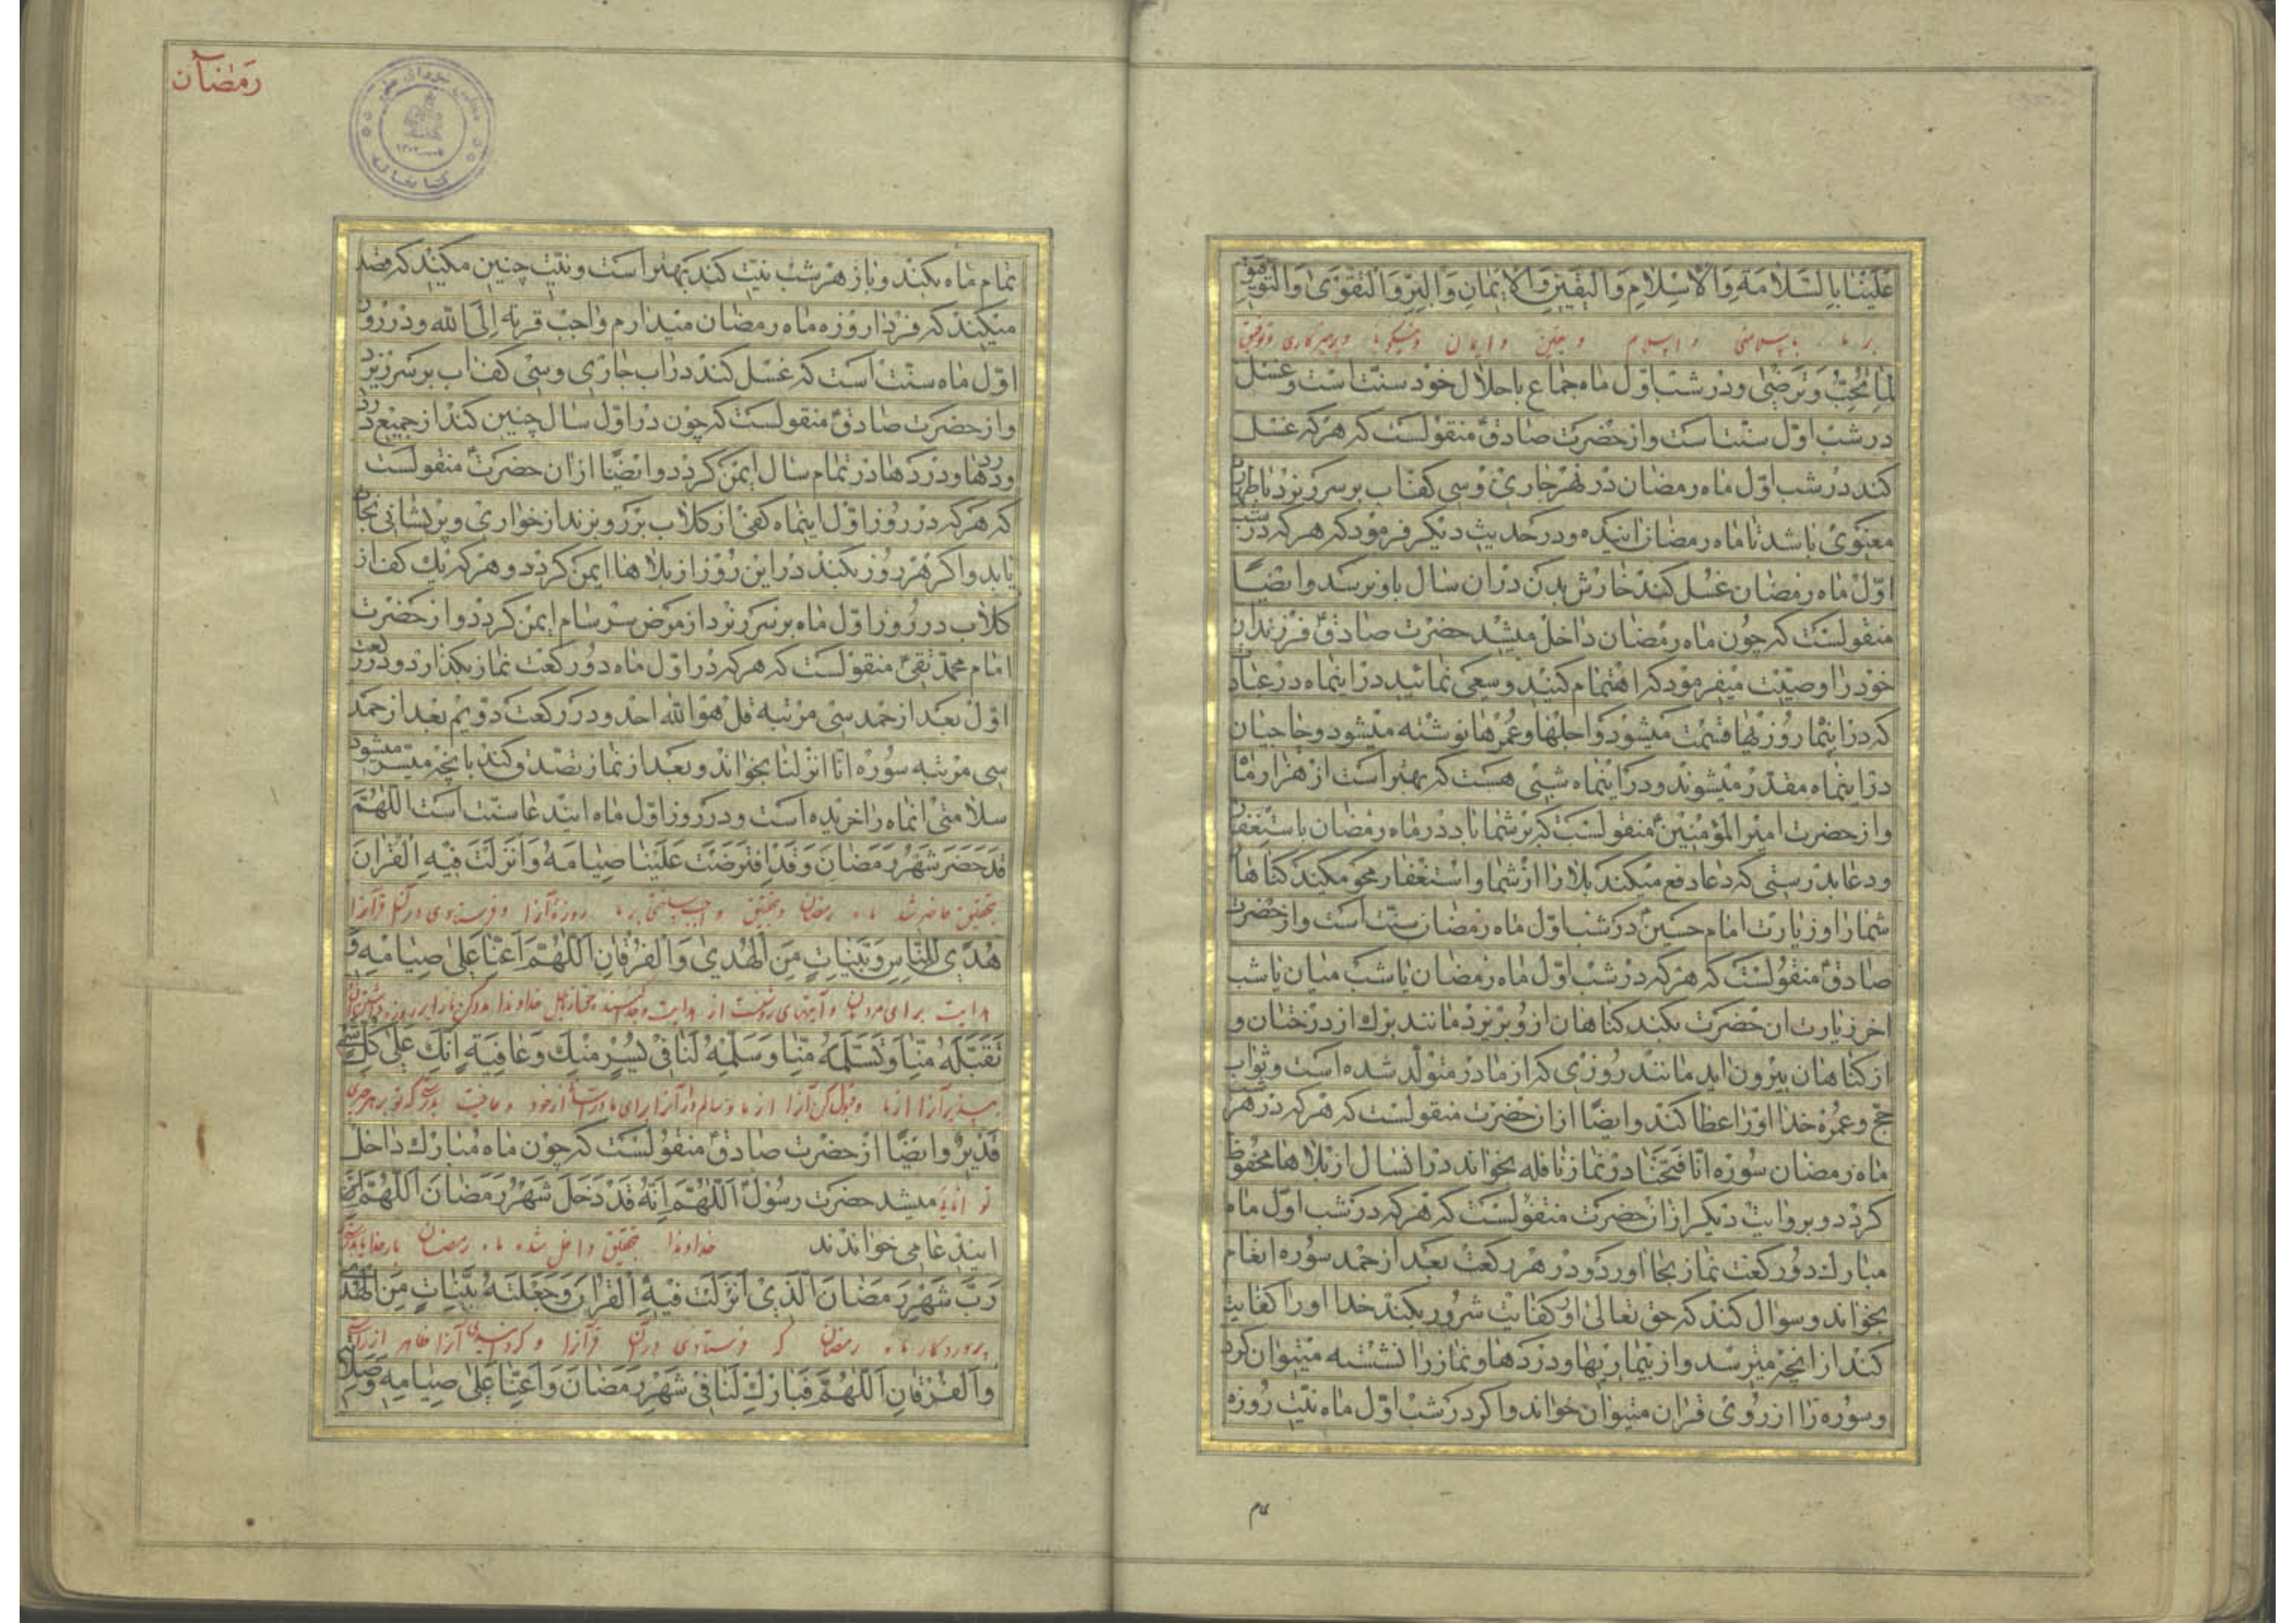 عَلَیْنَا بِالسَّلَامَةِ وَالْاِسْلَامِ وَالْیَقِینِ وَالْاِیمَانِ وَالْبِرِّ وَالتَّقْوَیٰ وَالتَّوْفِیقِ
بر ما بسلامتی و اسلام و یقین و ایمان و نیکوئی و پرهیزکاری و توفیق
لِمَا تُحِبُّ وَتَرْضیٰ و در شب اوّل ماه جماع با حلال خود سنّت است و غسل
در شب اوّل سنّت است و از حضرت صادقؑ منقولست که هر که غسل
کند در شب اوّل ماه رمضان در نهر جاری و سی کف اب بر سر ریزد با طهارت
معنوی باشد تا ماه رمضان اینده و در حدیث دیگر فرمود که هر که در شب
اوّل ماه رمضان غسل کند خارش بدن در ان سال باو نرسد و ایضاً
منقولست که چون ماه رمضان داخل میشد حضرت صادقؑ فرزندان
خود را وصیّت میفرمود که اهتمام کنید و سعی نمائید در اینماه در عبادت
که در اینماه روزیها قسمت میشود و اجلها و عمرها نوشته میشود و حاجیان
در اینماه مقدّر میشوند و در اینماه شبی هست که بهتر است از هزار ماه
و از حضرت امیر المؤمنینؑ منقولست که بر شما باد در ماه رمضان باستغفار
و دعا بدرستی که دعا دفع میکند بلا را از شما و استغفار محو میکند کناهان
شما را و زیارت امام حسینؑ در شب اوّل ماه رمضان سنّت است و از حضرت
صادقؑ منقولست که هر که در شب اوّل ماه رمضان یا شب میان یا شب
اخر زیارت ان حضرت بکند کناهان از و بریزد مانند برك از درختان و
از کناهان بیرون اید مانند روزی که از مادر متولّد شده است و ثواب
حجّ و عمره خدا او را عطا کند و ایضاً از ان حضرت منقولست که هر که در هر شب
ماه رمضان سوره انّا فتحنا در نماز نافله بخواند در انسال از بلاها محفوظ
کردد و بروایت دیکر از ان حضرت منقولست که هر که در شب اوّل ماه
مبارك دو رکعت نماز بجا اورد و در هر رکعت بعد از حمد سوره انعام
بخواند و سوال کند که حق تعالی او را کفایت شرور بکند خدا او را کفایت
کند از انچه میترسد و از بیماریها و دردها و نماز را نشسته میتوان کرد
و سوره را از روی قران میتوان خواند و اکر در شب اوّل ماه نیّت روزه
رمضان
کتابخانه
تمام ماه بکند و باز هر شب نیّت کند بهتر است و نیّت چنین میکند که قصد
میکند که فردا روزه ماه رمضان میدارم واجب قربة الی الله و در روز
اوّل ماه سنّت است که غسل کند در اب جاری و سی کف اب بر سر ریزد
و از حضرت صادقؑ منقولست که چون در اوّل سال چنین کند از جمیع درد
و دردها در تمام سال ایمن کردد و ایضاً از ان حضرتؑ منقولست
که هر که در روز اوّل اینماه کفی از کلاب بر رو بزند از خواری و پریشانی نجات
یابد و اکر هر روز بکند در این روز از بلاها ایمن کردد و هر که یك کف از
کلاب در روز اوّل ماه بر سر ریزد از مرض سرسام ایمن کردد و از حضرت
امام محمّد تقیؑ منقولست که هر که در اوّل ماه دو رکعت نماز بکذارد و در رکعت
اوّل بعد از حمد سی مرتبه قل هو الله احد و در رکعت دویم بعد از حمد
سی مرتبه سوره انّا انزلنا بخواند و بعد از نماز تصدّق کند بانچه میسّر میشود
سلامتی انماه را خریده است و در روز اوّل ماه ایندعا سنّت است اَللّٰهُمَّ
قَدْ حَضَرَ شَهْرُ رَمَضَانَ وَقَدِ افْتَرَضْتَ عَلَیْنَا صِیَامَهُ وَاَنْزَلْتَ فِیهِ الْقُرْاٰنَ
بتحقیق حاضر شد ماه رمضان و بتحقیق واجب ساختی بر ما روزه آنرا و فرستادی در آن قرآنرا
هُدًی لِلنَّاسِ وَبَیِّنَاتٍ مِنَ الْهُدیٰ وَالْفُرْقَانِ اَللّٰهُمَّ اَعِنَّا عَلیٰ صِیَامِهِ وَ
هدایت برای مردمان و آیتهای روشن از هدایت خداوندا مدد کن ما را بر روزه
تَقَبَّلْهُ مِنَّا وَتَسَلَّمْهُ مِنَّا وَسَلِّمْهُ لَنَا فِی یُسْرٍ مِنْكَ وَعَافِیَةٍ اِنَّكَ عَلیٰ کُلِّ شَیْءٍ
بپذیر آنرا از ما و قبول کن آنرا از ما و سالم دار آنرا برای ما از خود و عافیت بدرستی که تو بر هر چیزی
قَدِیرٌ و ایضاً از حضرت صادقؑ منقولست که چون ماه مبارك داخل
توانا میشد حضرت رسولؐ اَللّٰهُمَّ اِنَّهُ قَدْ دَخَلَ شَهْرُ رَمَضَانَ اَللّٰهُمَّ
ایندعا می خواندند خداوندا بتحقیق داخل شد ماه رمضان بار خدایا
رَبَّ شَهْرِ رَمَضَانَ الَّذِی اَنْزَلْتَ فِیهِ الْقُرْاٰنَ وَجَعَلْتَهُ بَیِّنَاتٍ مِنَ الْهُدیٰ
پروردکار ماه رمضان که فرستادی در آن قرآنرا و آنرا ظاهر از
وَالْفُرْقَانِ اَللّٰهُمَّ فَبَارِكْ لَنَا فِی شَهْرِ رَمَضَانَ وَاَعِنَّا عَلیٰ صِیَامِهِ وَ